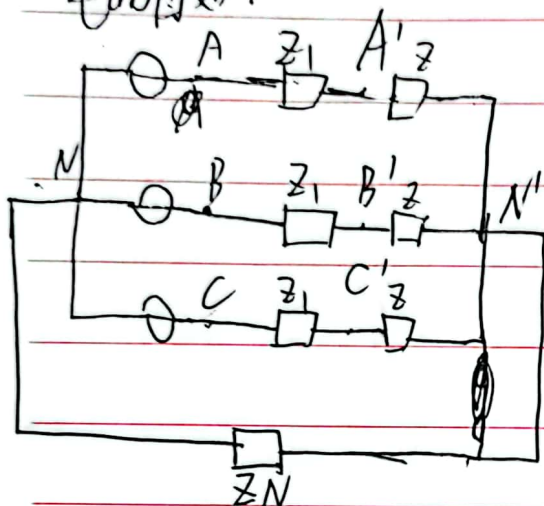 A Z1 A' Z
N B Z1 B' Z N'
C Z1 C' Z
ZN